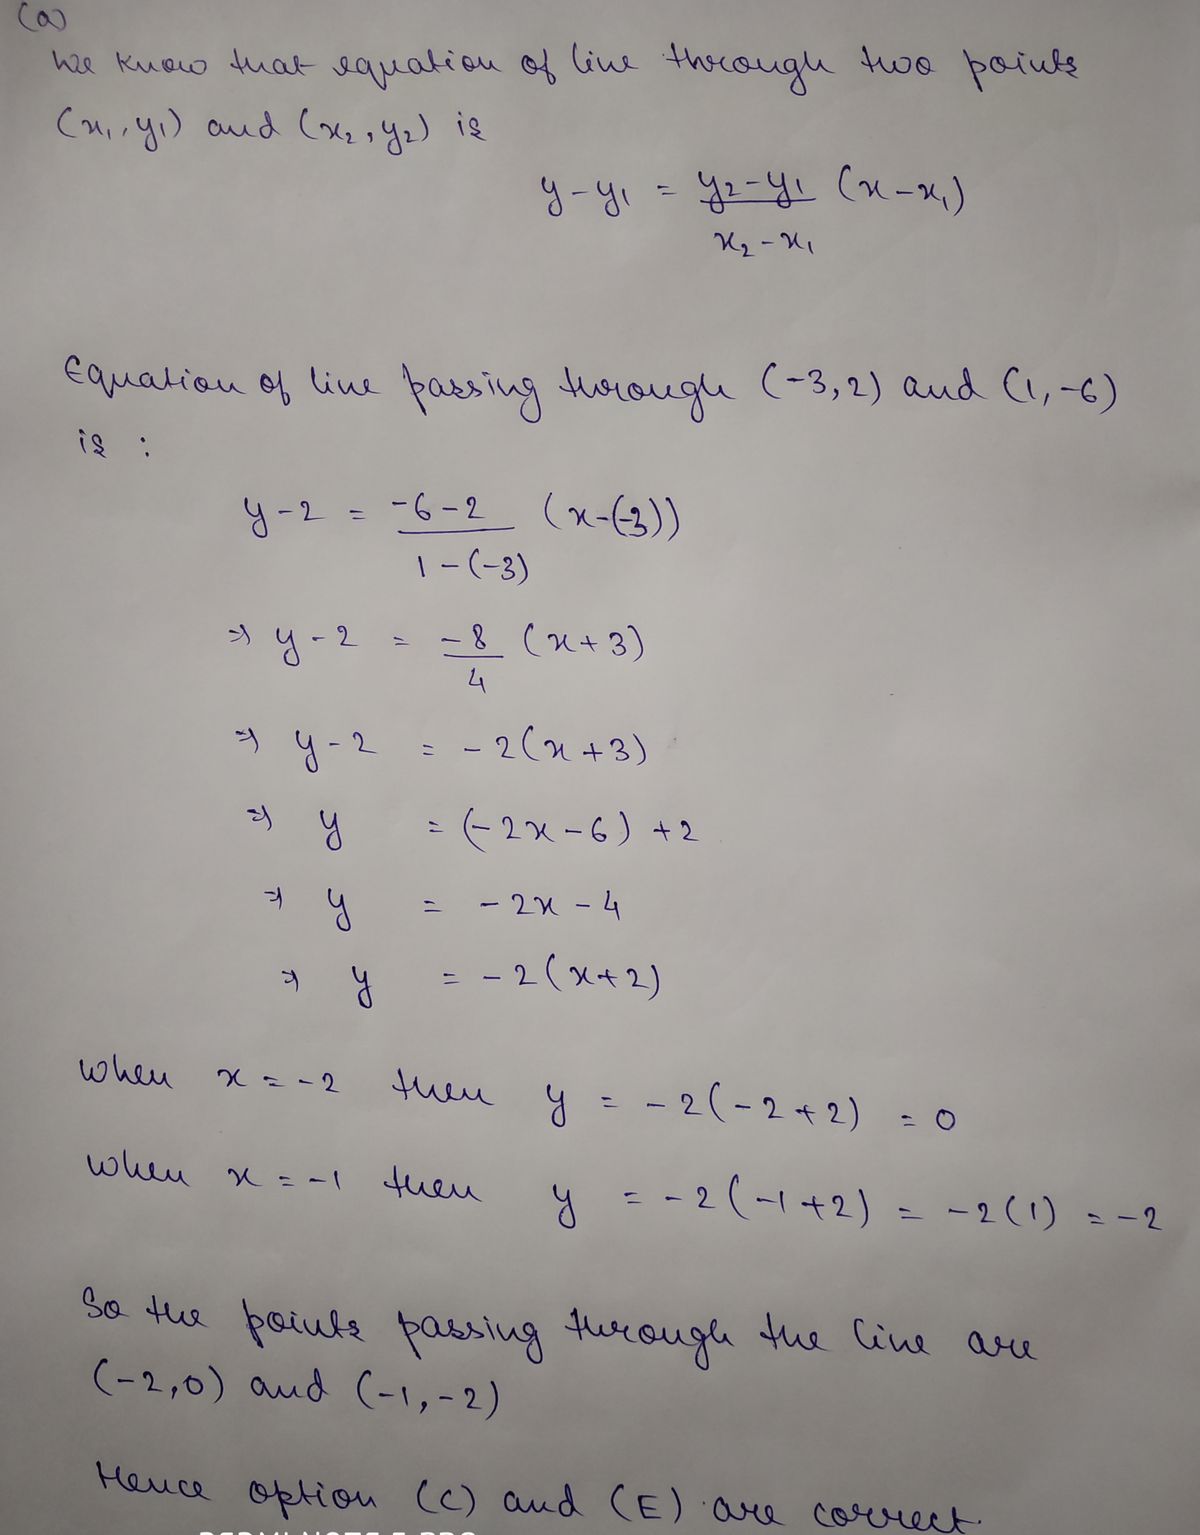 (a)
We know that equation of line through two points
(x₁, y₁) and (x₂, y₂) is
y - y₁ = y₂ - y₁ (x - x₁)
x₂ - x₁
Equation of line passing through (-3, 2) and (1, -6)
is :
y - 2 = -6 - 2 (x - (-3))
1 - (-3)
⇒ y - 2 = -8 (x + 3)
4
⇒ y - 2 = - 2(x + 3)
⇒ y = (- 2x - 6) + 2
⇒ y = - 2x - 4
⇒ y = - 2(x + 2)
when x = - 2 then y = - 2(- 2 + 2) = 0
when x = - 1 then y = - 2(-1 + 2) = - 2(1) = - 2
So the points passing through the line are
(-2, 0) and (-1, -2)
Hence option (C) and (E) are correct.